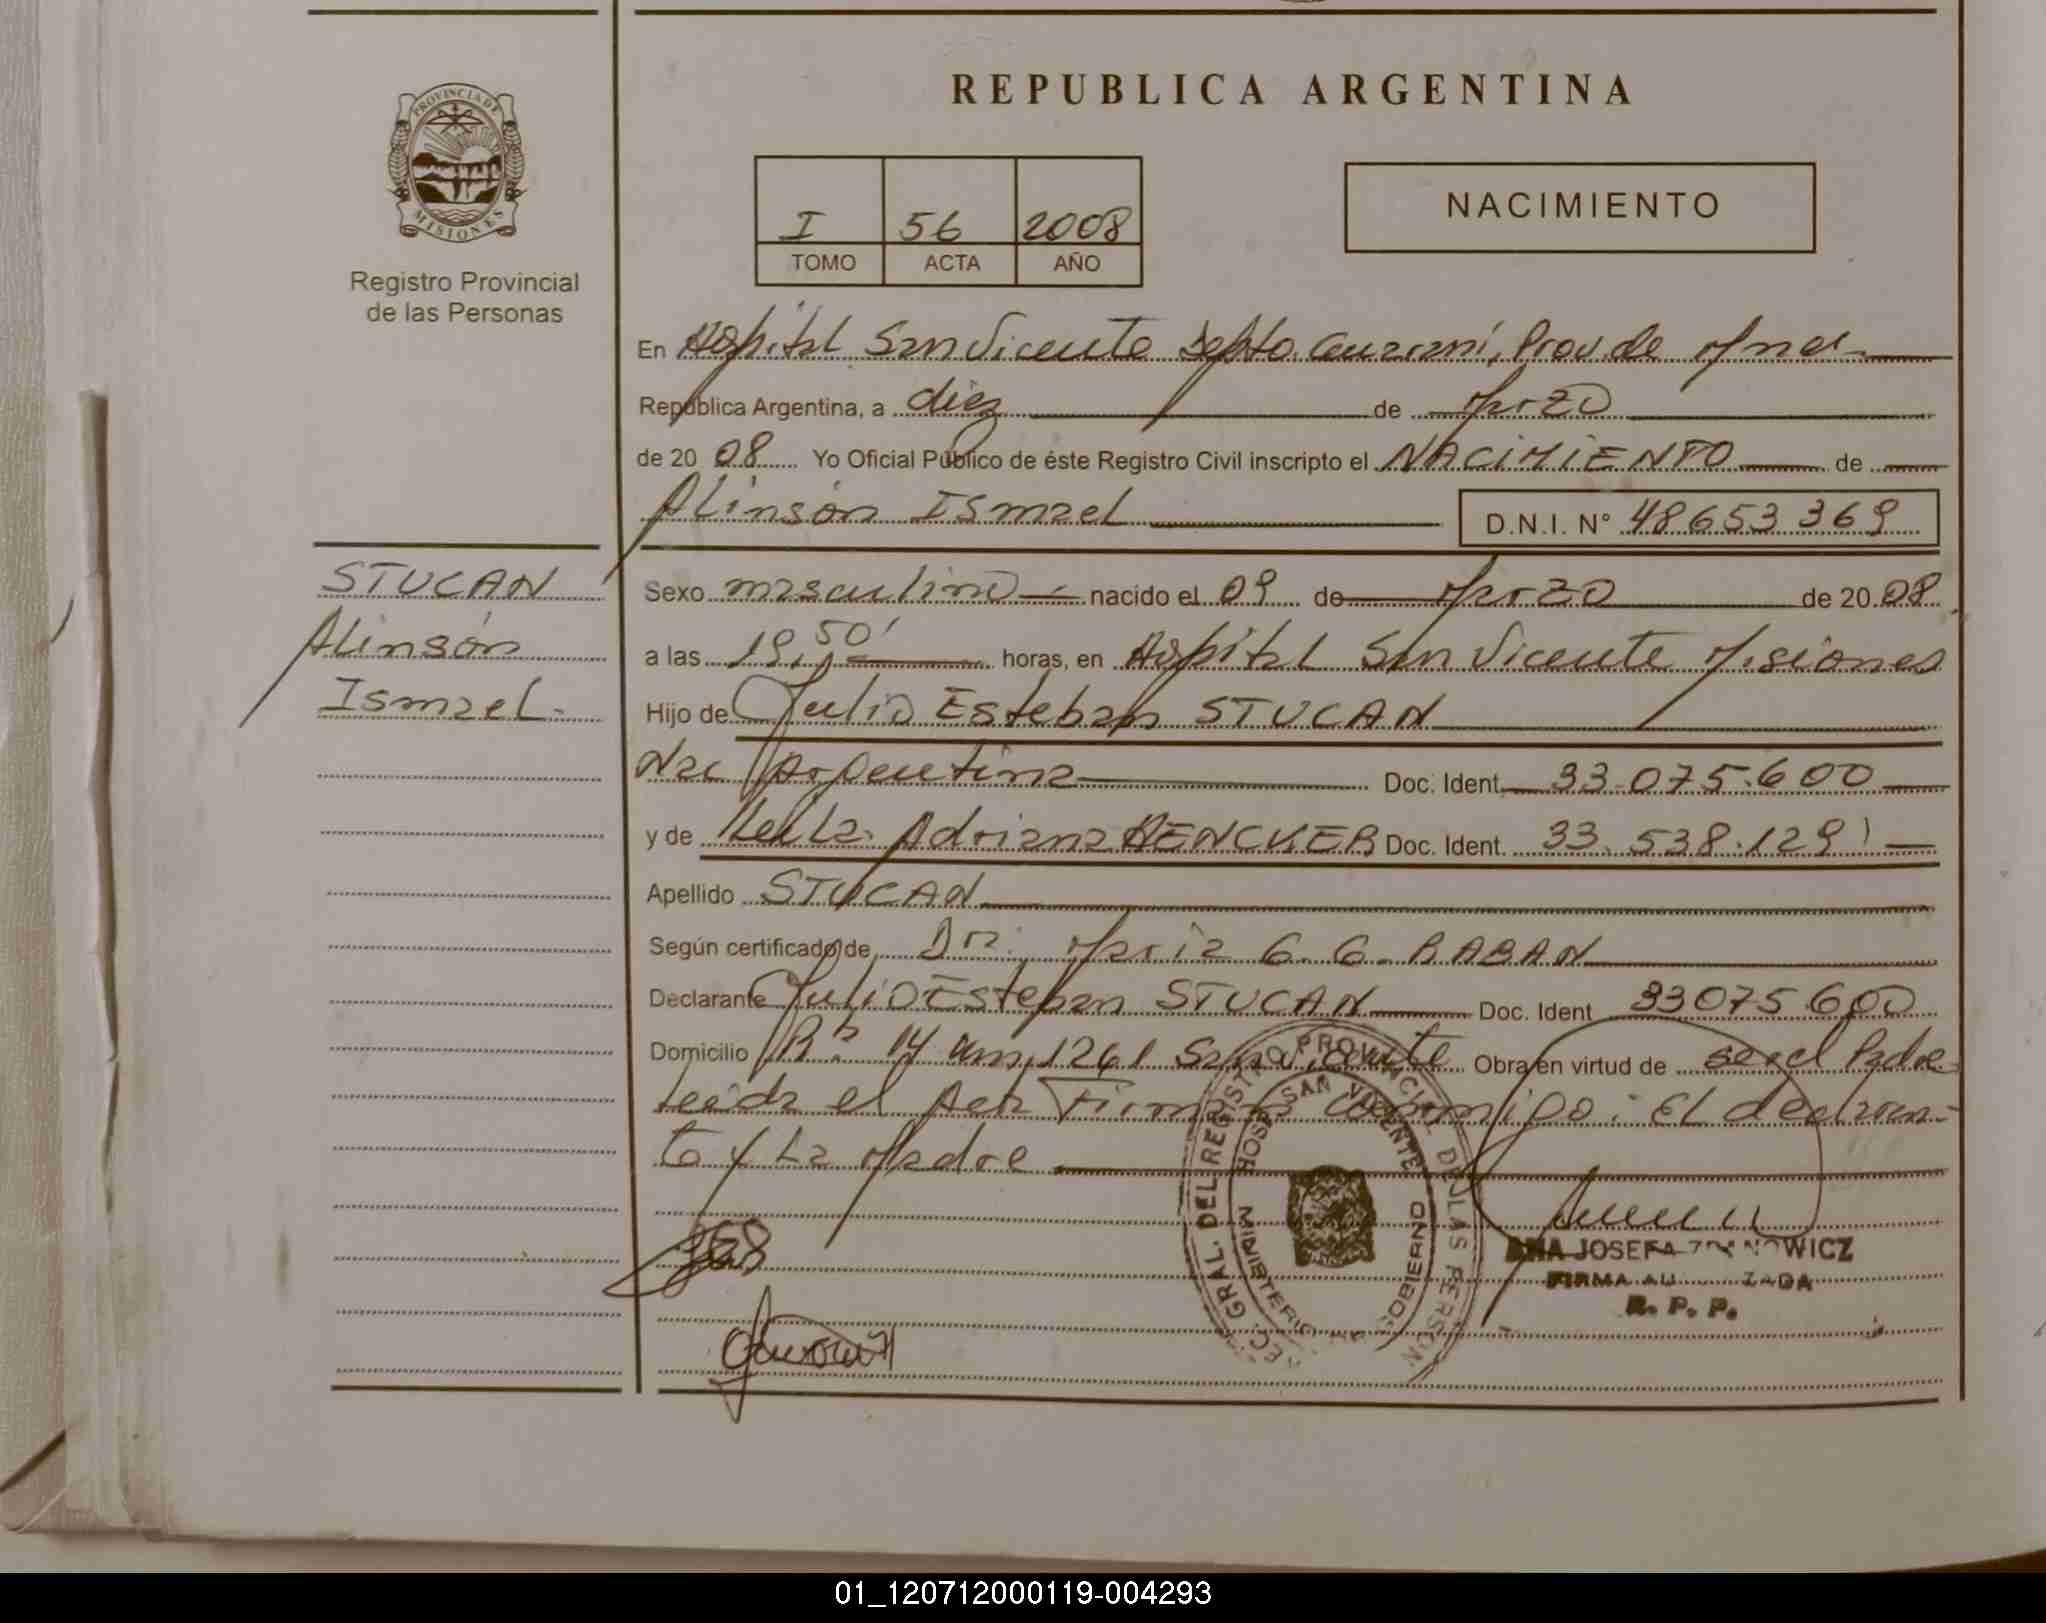 REPUBLICA ARGENTINA
PROVINCIA DE
MISIONES
Registro Provincial
de las Personas
I 56 2008
TOMO ACTA AÑO
NACIMIENTO
En Hospital San Vicente Depto. Guarani, Prov. de Mnes
República Argentina, a diez de Marzo
de 20 08 Yo Oficial Público de éste Registro Civil inscripto el NACIMIENTO de
Alinsón Ismael D.N.I. N° 48653369
STUCAN
Alinsón
Ismael.
Sexo masculino nacido el 09 de Marzo de 20 08
a las 19,50' horas, en Hospital San Vicente Misiones
Hijo de Julio Esteban STUCAN
Nac Argentina Doc. Ident. 33.075.600
y de Adriana HENCKER Doc. Ident. 33.538.129
Apellido STUCAN
Según certificado de Dra. Maria G. G. RABAN
Declarante Julio Esteban STUCAN Doc. Ident 33075600
Domicilio B° 14 1261 San Vicente Obra en virtud de ser el Padre
Leida el Acta Firman conmigo: El declaran-
te y La Madre
REC. GRAL. DEL REGISTRO PROVINCIAL DE LAS PERSON
HOSP. SAN VICENTE
MINISTERIO DE GOBIERNO
ANA JOSEFA WICZ
FIRMA AUTORIZADA
R. P. P.
01_120712000119-004293